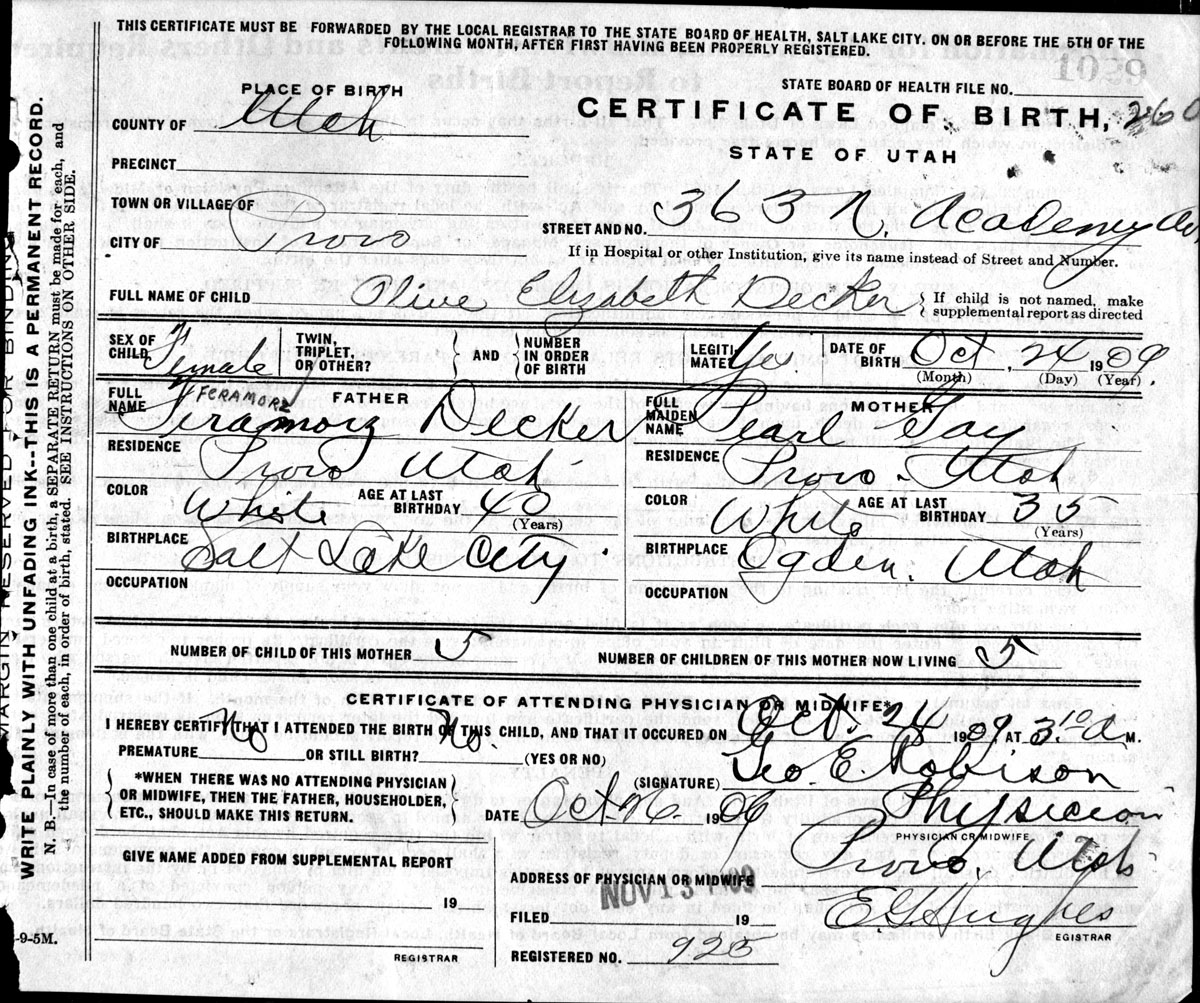 THIS CERTIFICATE MUST BE FORWARDED BY THE LOCAL REGISTRAR TO THE STATE BOARD OF HEALTH, SALT LAKE CITY, ON OR BEFORE THE 5TH OF THE
FOLLOWING MONTH, AFTER FIRST HAVING BEEN PROPERLY REGISTERED.
1059
STATE BOARD OF HEALTH FILE NO.
PLACE OF BIRTH
CERTIFICATE OF BIRTH, 260
COUNTY OF Utah
STATE OF UTAH
PRECINCT
TOWN OR VILLAGE OF
STREET AND NO. 363 N. Academy Av
CITY OF Provo
If in Hospital or other Institution, give its name instead of Street and Number.
FULL NAME OF CHILD Olive Elizabeth Decker
If child is not named, make
supplemental report as directed
SEX OF CHILD Female
TWIN, TRIPLET, OR OTHER?
AND
NUMBER IN ORDER OF BIRTH
LEGITIMATE? Yes
DATE OF BIRTH Oct, 24 1909
(Month) (Day) (Year)
FATHER
FERAMORZ
FULL NAME Feramorz Decker
RESIDENCE Provo Utah
COLOR White
AGE AT LAST BIRTHDAY 40
(Years)
BIRTHPLACE Salt Lake City.
OCCUPATION
MOTHER
FULL MAIDEN NAME Pearl
RESIDENCE Provo Utah
COLOR White
AGE AT LAST BIRTHDAY 35
(Years)
BIRTHPLACE Ogden, Utah
OCCUPATION
NUMBER OF CHILD OF THIS MOTHER 5
NUMBER OF CHILDREN OF THIS MOTHER NOW LIVING 5
CERTIFICATE OF ATTENDING PHYSICIAN OR MIDWIFE*
I HEREBY CERTIFY THAT I ATTENDED THE BIRTH OF THIS CHILD, AND THAT IT OCCURED ON Oct. 24 1909, AT 3.10 a M.
PREMATURE No OR STILL BIRTH? No. (YES OR NO)
(SIGNATURE) Geo. E. Robison
*WHEN THERE WAS NO ATTENDING PHYSICIAN
OR MIDWIFE, THEN THE FATHER, HOUSEHOLDER,
ETC., SHOULD MAKE THIS RETURN.
DATE Oct 26. 1909 Physician
PHYSICIAN OR MIDWIFE.
GIVE NAME ADDED FROM SUPPLEMENTAL REPORT
19
REGISTRAR
ADDRESS OF PHYSICIAN OR MIDWIFE Provo, Utah
NOV 13 1909
FILED 19 E G Hughes
EGISTRAR
REGISTERED NO. 923
-9-5M.
MARGIN RESERVED FOR BINDING
WRITE PLAINLY WITH UNFADING INK--THIS IS A PERMANENT RECORD.
N. B.—In case of more than one child at a birth, a SEPARATE RETURN must be made for each, and
the number of each, in order of birth, stated. SEE INSTRUCTIONS ON OTHER SIDE.